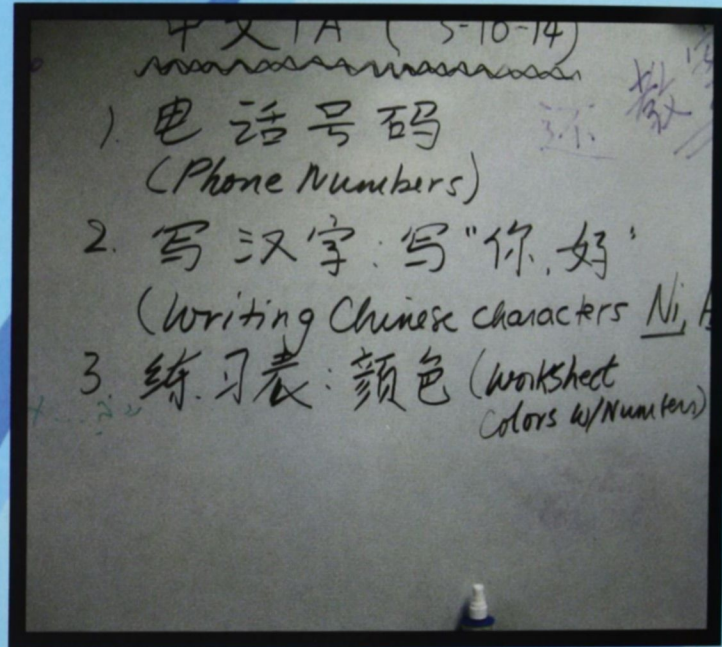 中文1A (5-10-14)
1). 电话号码
(Phone Numbers)
2. 写汉字:写"你,好"
(Writing Chinese characters Ni,
3. 练习表:颜色 (worksheet
Colors w/Numbers)
教